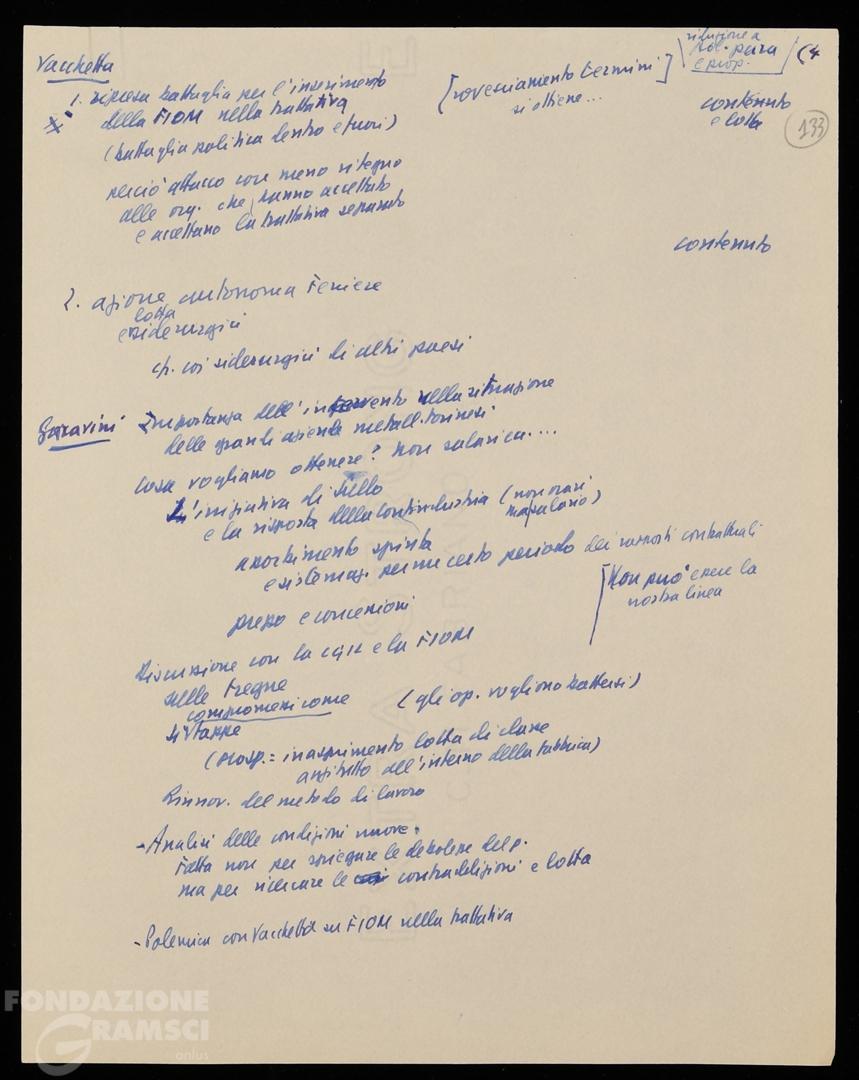 riduzione a
sol. pura
e prop.
(4
133
Vacchetta
1. ripresa battaglia per l'inserimento
della FIOM nella trattativa
(battaglia politica dentro e fuori)
[rovesciamento termini]
si ottiene...
contenuto
e lotta
perciò attacco con meno ritegno
alle org. che hanno accettato
e accettano la trattativa separata
contenuto
2. azione autonoma Ferriere
lotta
e siderurgici
cp. coi siderurgici di altri paesi
Garavini Importanza dell'intervento nella situazione
delle grandi aziende metall. torinesi
cosa vogliamo ottenere? non salarica....
L'iniziativa di Sullo
e la risposta della Confindustria (non orari
ma salario)
assorbimento spinta
e sistemaz. per un certo periodo dei rapporti contrattuali
[Non può essere la
nostra linea
prezzo e concessioni
Discussione con la CGIL e la FIOM
sulle tregue
compromessi come
(gli op. vogliono battersi)
di tappe
(prosp. = inasprimento lotta di classe
anzitutto all'interno della fabbrica)
Rinnov. del metodo di lavoro
- Analisi delle condizioni nuove.
Fatta non per spiegare le debolezze del p.
ma per ricercare le contraddizioni e lotta
- Polemica con Vacchetta su FIOM nella trattativa
FONDAZIONE
GRAMSCI
onlus